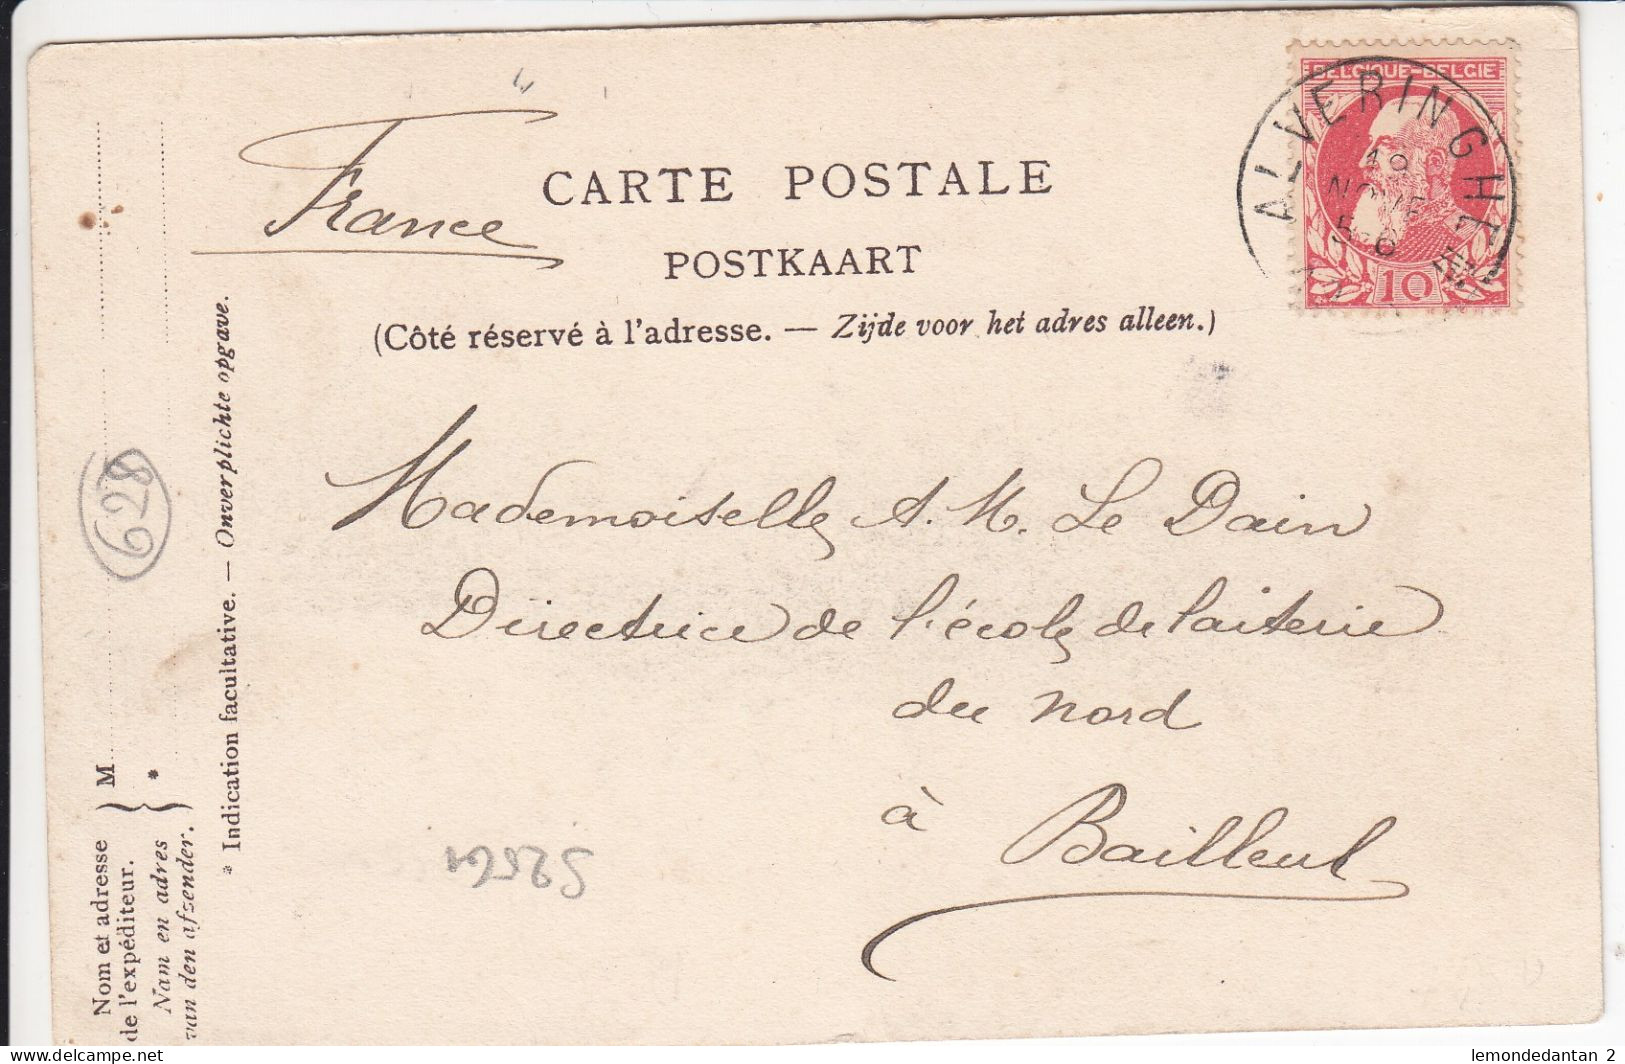 BELGIQUE-BELGIE
ALVERINGHEM
NOVE
10
France
CARTE POSTALE
POSTKAART
(Côté réservé à l'adresse. — Zijde voor het adres alleen.)
Mademoiselle A. M. Le Dain
Directrice de l'école de laiterie
du Nord
à Bailleul
628
52561
Nom et adresse
de l'expéditeur.
Nam en adres
van den afzender.
M
*
* Indication facultative. — Onverplichte opgave.
lemondedantan 2